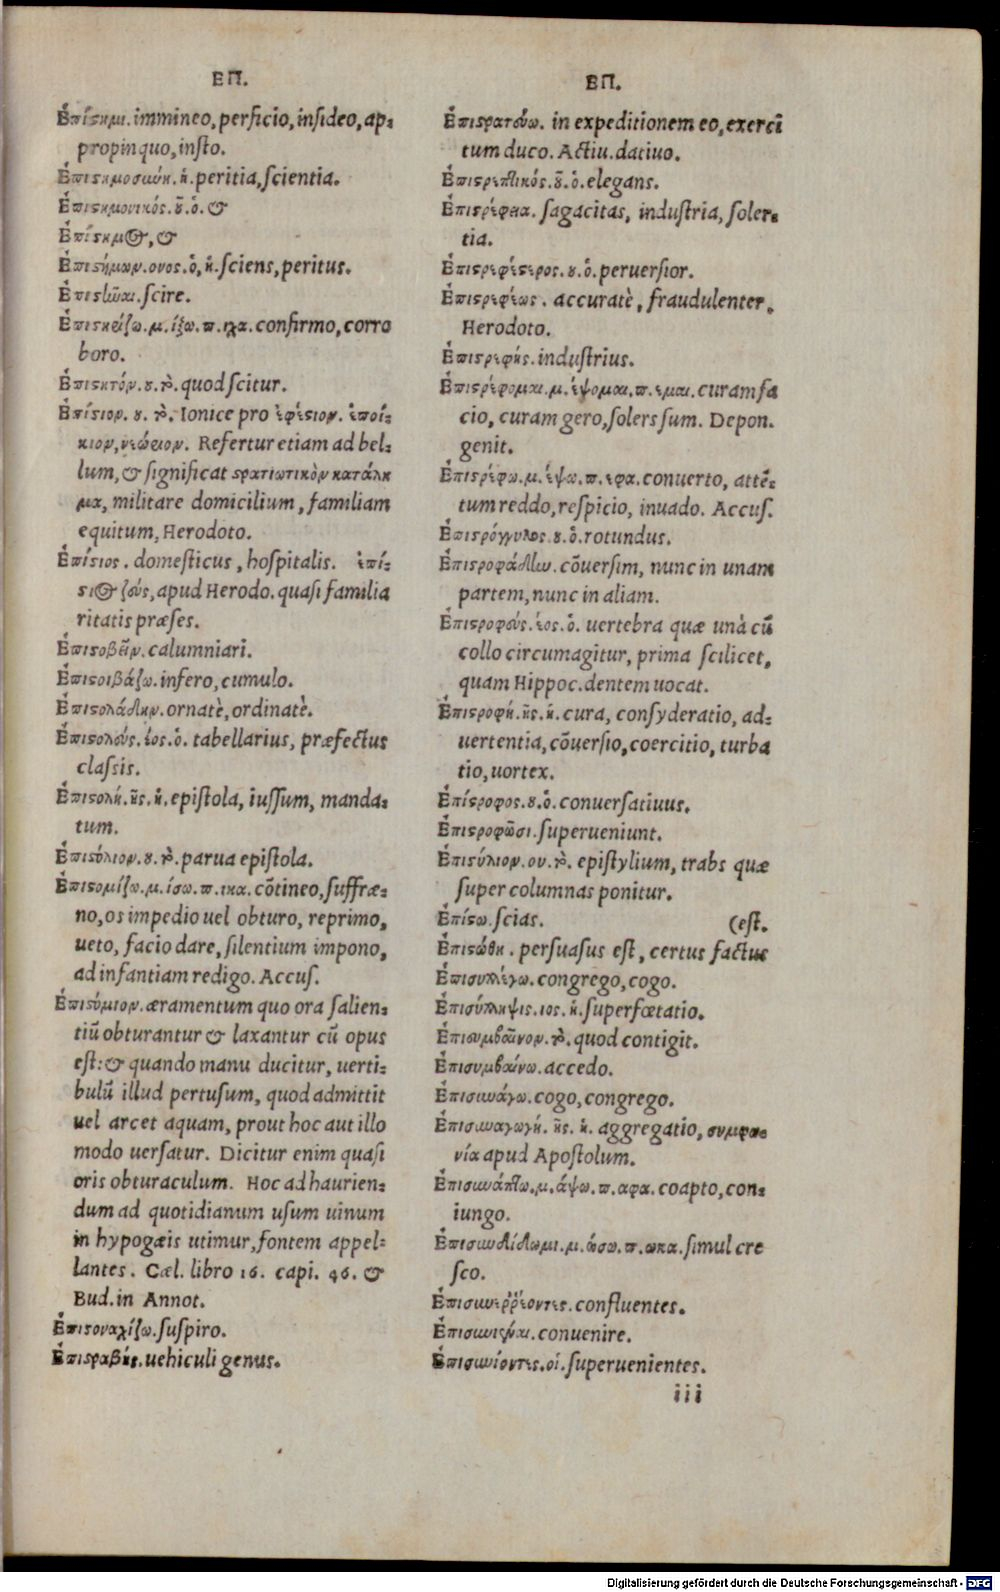 ΕΠ.
Ἐπίϛημι. immineo, perficio, inſideo, ap⸗
propinquo, inſto.
Ἐπιϛημοσύνη. ἡ. peritia, ſcientia.
Ἐπιϛημονικός. οῦ. ὁ. &
Ἐπίϛημος, &
Ἐπιϛήμων. ονος. ὁ, ἡ. ſciens, peritus.
Ἐπιϛῆναι. ſcire.
Ἐπιϛηρίζω. μ. ίξω. π. ιχα. confirmo, corro
boro.
Ἐπιϛητόν. ου. τὸ. quod ſcitur.
Ἐπίϛιον. ου. τὸ. Ionice pro ἐφέϛιον. ἐποί⸗
κιον, νεώριον. Refertur etiam ad bel⸗
lum, & ſignificat ϛρατιωτικὸν κατάλη
μα, militare domicilium, familiam
equitum, Herodoto.
Ἐπίϛιος. domeſticus, hoſpitalis. ἐπί⸗
ϛιος ζεύς, apud Herodo. quaſi familia
ritatis præſes.
Ἐπιϛοβεῖν. calumniari.
Ἐπιϛοιβάζω. infero, cumulo.
Ἐπιϛολάδην. ornatè, ordinatè.
Ἐπιϛολεύς. έος. ὁ. tabellarius, præfectus
claſsis.
Ἐπιϛολή. ῆς. ἡ. epiſtola, iuſſum, manda⸗
tum.
Ἐπιϛόλιον. ου. τὸ. parua epiſtola.
Ἐπιϛομίζω. μ. ίσω. π. ικα. cōtineo, ſuffræ⸗
no, os impedio uel obturo, reprimo,
ueto, facio dare, ſilentium impono,
ad infantiam redigo. Accuſ.
Ἐπιϛόμιον. æramentum quo ora ſalien⸗
tiū obturantur & laxantur cū opus
eſt: & quando manu ducitur, uerti⸗
bulū illud pertuſum, quod admittit
uel arcet aquam, prout hoc aut illo
modo uerſatur. Dicitur enim quaſi
oris obturaculum. Hoc ad haurien⸗
dum ad quotidianum uſum uinum
in hypogæis utimur, fontem appel⸗
lantes. Cæl. libro 16. capi. 46. &
Bud. in Annot.
Ἐπιϛοναχίζω. ſuſpiro.
Ἐπιϛραβής. uehiculi genus.
ΕΠ.
Ἐπιϛρατεύω. in expeditionem eo, exerci
tum duco. Actiu. datiuo.
Ἐπιϛρεπτικός. οῦ. ὁ. elegans.
Ἐπιϛρέφεια. ſagacitas, induſtria, ſoler⸗
tia.
Ἐπιϛρεφέϛερος. ου. ὁ. peruerſior.
Ἐπιϛρεφέως. accuratè, fraudulenter.
Herodoto.
Ἐπιϛρεφής. induſtrius.
Ἐπιϛρέφομαι. μ. έψομαι. π. εμαι. curam fa
cio, curam gero, ſolers ſum. Depon.
genit.
Ἐπιϛρέφω. μ. έψω. π. εφα. conuerto, attē⸗
tum reddo, reſpicio, inuado. Accuſ.
Ἐπιϛρόγγυλος. ου. ὁ. rotundus.
Ἐπιϛροφάδην. cōuerſim, nunc in unam
partem, nunc in aliam.
Ἐπιϛροφεύς. έος. ὁ. uertebra quæ unà cū
collo circumagitur, prima ſcilicet,
quam Hippoc. dentem uocat.
Ἐπιϛροφή. ῆς. ἡ. cura, conſyderatio, ad⸗
uertentia, cōuerſio, coercitio, turba
tio, uortex.
Ἐπίϛροφος. ου. ὁ. conuerſatiuus.
Ἐπιϛροφῶσι. ſuperueniunt.
Ἐπιϛύλιον. ου. τὸ. epiſtylium, trabs quæ
ſuper columnas ponitur.
Ἐπίϛω. ſcias. (eſt.
Ἐπιϛώθη. perſuaſus eſt, certus factus
Ἐπισυλλέγω. congrego, cogo.
Ἐπισύλληψις. ιος. ἡ. ſuperfœtatio.
Ἐπισυμβαῖνον. τὸ. quod contigit.
Ἐπισυμβαίνω. accedo.
Ἐπισυνάγω. cogo, congrego.
Ἐπισυναγωγή. ῆς. ἡ. aggregatio, συμφω⸗
νία apud Apoſtolum.
Ἐπισυνάπτω. μ. άψω. π. αφα. coapto, con⸗
iungo.
Ἐπισυνδίδωμι. μ. ώσω. π. ωκα. ſimul cre
ſco.
Ἐπισυνερῤέοντες. confluentes.
Ἐπισυνιέναι. conuenire.
Ἐπισυνίοντες. οἱ. ſuperuenientes.
iii
Digitalisierung gefördert durch die Deutsche Forschungsgemeinschaft - DFG